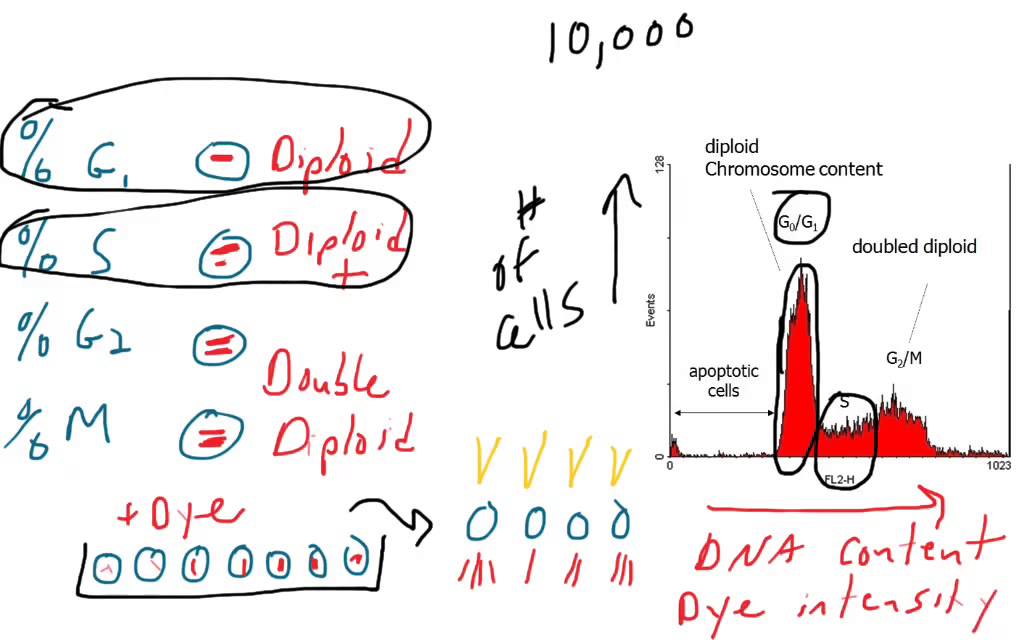 10,000
% G1 Diploid
% S Diploid +
% G2
% M
Double
Diploid
+ Dye
# of cells
diploid
Chromosome content
G0/G1
doubled diploid
G2/M
apoptotic
cells
S
128
Events
0
0
1023
FL2-H
DNA content
Dye intensity